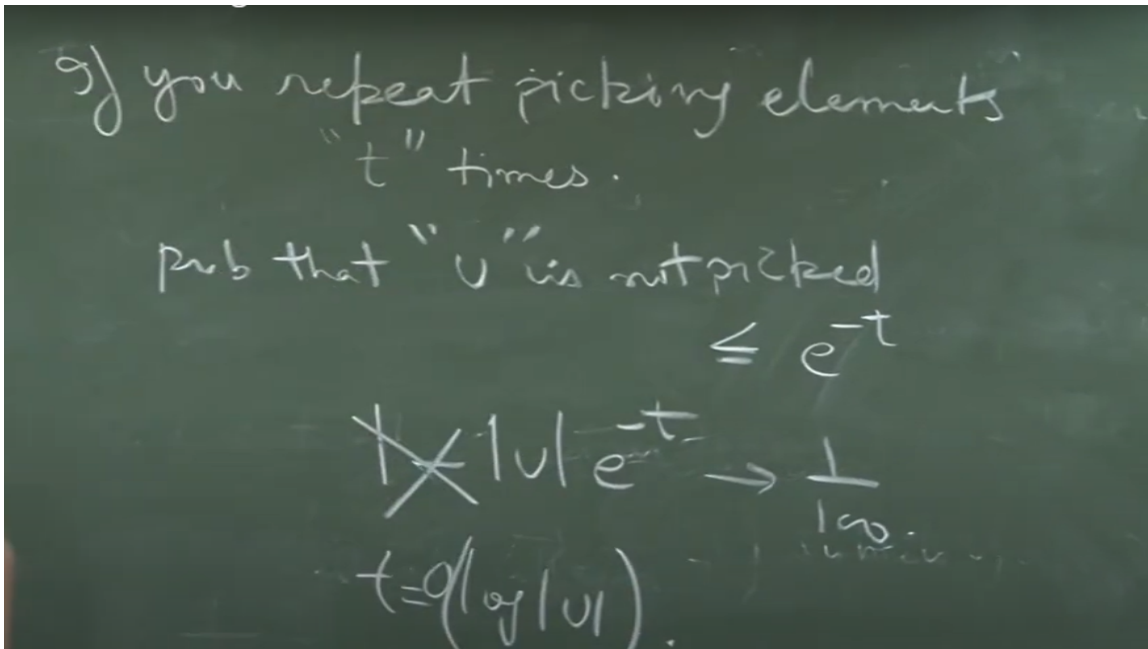 If you repeat picking elements
"t" times.
prob that "υ" is not picked
≤ e^-t
|υ| e^-t → 1/100.
t=O(log|υ|).